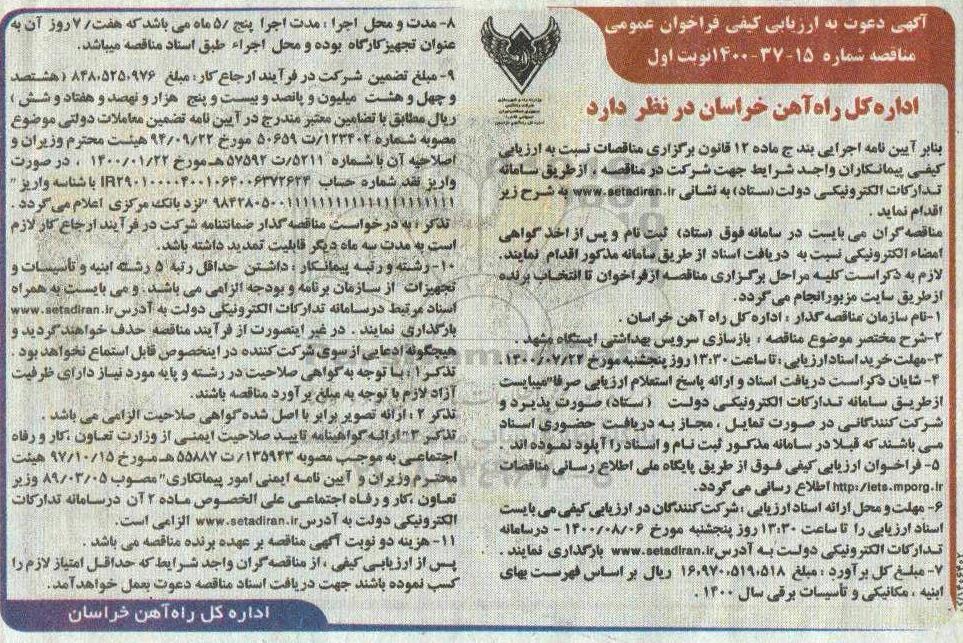 آگهی دعوت به ارزیابی کیفی فراخوان عمومی
مناقصه شماره ۱۵-۳۷-۱۴۰۰ نوبت اول
اداره کل راه‌آهن خراسان در نظر دارد
بنابر آیین نامه اجرایی بند ج ماده ۱۲ قانون برگزاری مناقصات نسبت به ارزیابی
کیفی پیمانکاران واجد شرایط جهت شرکت در مناقصه ، ازطریق سامانه
تدارکات الکترونیکی دولت (ستاد) به نشانی www.setadiran.ir به شرح زیر
اقدام نماید .
مناقصه گران می بایست در سامانه فوق (ستاد) ثبت نام و پس از اخذ گواهی
امضاء الکترونیکی نسبت به دریافت اسناد از طریق سامانه مذکور اقدام نمایند.
لازم به ذکر است کلیه مراحل برگزاری مناقصه ازفراخوان تا انتخاب برنده
ازطریق سایت مزبور انجام می گردد.
۱-نام سازمان مناقصه گذار : اداره کل راه آهن خراسان .
۲-شرح مختصر موضوع مناقصه : بازسازی سرویس بهداشتی ایستگاه مشهد .
۳-مهلت خرید اسناد ارزیابی : تا ساعت ۱۳:۳۰ روز پنجشنبه مورخ ۱۴۰۰/۰۷/۲۲.
۴- شایان ذکر است دریافت اسناد و ارائه پاسخ استعلام ارزیابی صرفا"میبایست
ازطریق سامانه تدارکات الکترونیکی دولت (ستاد) صورت پذیرد و
شرکت کنندگانی در صورت تمایل ، مجاز به دریافت حضوری اسناد
می باشند که قبلا در سامانه مذکور ثبت نام و اسناد را آپلود نموده اند .
۵- فراخوان ارزیابی کیفی فوق از طریق پایگاه ملی اطلاع رسانی مناقصات
http://iets.mporg.ir اطلاع رسانی می گردد.
۶- مهلت و محل ارائه اسناد ارزیابی : شرکت کنندگان در ارزیابی کیفی می بایست
اسناد ارزیابی را تا ساعت ۱۳:۳۰ روز پنجشنبه مورخ ۱۴۰۰/۰۸/۰۶ - درسامانه
تدارکات الکترونیکی دولت به آدرس www.setadiran.ir بارگذاری نمایند .
۷- مبلغ کل برآورد : مبلغ ۱۶،۹۷۰،۵۱۹،۵۱۸ ریال بر اساس فهرست بهای
ابنیه ، مکانیکی و تأسیسات برقی سال ۱۴۰۰ .
۸- مدت و محل اجرا : مدت اجرا پنج /۵ ماه می باشد که هفت/ ۷ روز آن به
عنوان تجهیزکارگاه بوده و محل اجراء طبق اسناد مناقصه میباشد.
۹- مبلغ تضمین شرکت در فرآیند ارجاع کار : مبلغ ۸۴۸،۵۲۵،۹۷۶ ( هشتصد
و چهل و هشت میلیون و پانصد و بیست و پنج هزار و نهصد و هفتاد و شش )
ریال مطابق با تضامین معتبر مندرج در آیین نامه تضمین معاملات دولتی موضوع
مصوبه شماره ۱۲۳۴۰۲/ت ۵۰۶۵۹ مورخ ۹۴/۰۹/۲۲ هیئت محترم وزیران و
اصلاحیه آن با شماره ۵۲۱۱/ت ۵۷۵۹۲ هـ مورخ ۱۴۰۰/۰۱/۲۲ ، در صورت
واریز نقد شماره حساب IR۲۹۰۱۰۰۰۰۴۰۰۱۰۶۴۰۰۶۳۷۲۶۲۴ با شناسه واریز "
نزد بانک مرکزی اعلام می گردد .
تذکر : به درخواست مناقصه گذار ضمانتنامه شرکت در فرآیند ارجاع کار لازم
است به مدت سه ماه دیگر قابلیت تمدید داشته باشد.
۱۰- رشته و رتبه پیمانکار : داشتن حداقل رتبه ۵ رشته ابنیه و تأسیسات و
تجهیزات از سازمان برنامه و بودجه الزامی می باشد . و می بایست به همراه
اسناد مرتبط درسامانه تدارکات الکترونیکی دولت به آدرس www.setadiran.ir
بارگذاری نمایند . در غیر اینصورت از فرآیند مناقصه حذف خواهند گردید و
هیچگونه ادعایی از سوی شرکت کننده در اینخصوص قابل استماع نخواهد بود .
تذکر۱ : با توجه به گواهی صلاحیت در رشته و پایه مورد نیاز دارای ظرفیت
آزاد لازم با توجه به مبلغ برآورد مناقصه باشند.
تذکر ۲ : ارائه تصویر برابر با اصل شده گواهی صلاحیت الزامی می باشد .
تذکر ۳" ارائه گواهینامه تایید صلاحیت ایمنی از وزارت تعاون ،کار و رفاه
اجتماعی به موجب مصوبه ۱۳۵۹۴۳/ت ۵۵۸۸۷ هـ مورخ ۹۷/۱۰/۱۵ هیئت
محترم وزیران و آیین نامه ایمنی امور پیمانکاری" مصوب ۸۹/۰۳/۰۵ وزیر
تعاون ،کار و رفاه اجتماعی علی الخصوص ماده ۲ آن درسامانه تدارکات
الکترونیکی دولت به آدرس www.setadiran.ir الزامی است.
۱۱- هزینه دو نوبت آگهی مناقصه بر عهده برنده مناقصه می باشد .
پس از ارزیابی کیفی ، از مناقصه گران واجد شرایط که حداقل امتیاز لازم را
کسب نموده باشند جهت دریافت اسناد مناقصه دعوت بعمل خواهدآمد.
اداره کل راه‌آهن خراسان